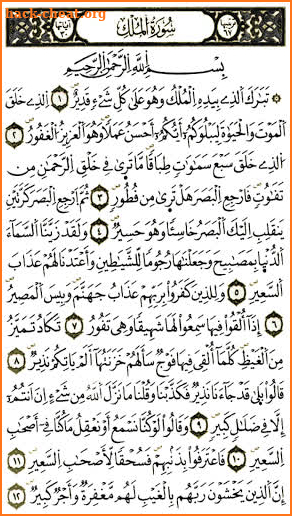 سُورَةُ المُلْكِ
بِسْمِ اللَّهِ الرَّحْمَٰنِ الرَّحِيمِ
تَبَارَكَ الَّذِي بِيَدِهِ الْمُلْكُ وَهُوَ عَلَىٰ كُلِّ شَيْءٍ قَدِيرٌ ١ الَّذِي خَلَقَ
الْمَوْتَ وَالْحَيَوٰةَ لِيَبْلُوَكُمْ أَيُّكُمْ أَحْسَنُ عَمَلًا وَهُوَ الْعَزِيزُ الْغَفُورُ ٢
الَّذِي خَلَقَ سَبْعَ سَمَٰوَٰتٍ طِبَاقًا مَا تَرَىٰ فِي خَلْقِ الرَّحْمَٰنِ مِنْ
تَفَٰوُتٍ فَارْجِعِ الْبَصَرَ هَلْ تَرَىٰ مِنْ فُطُورٍ ٣ ثُمَّ ارْجِعِ الْبَصَرَ كَرَّتَيْنِ
يَنْقَلِبْ إِلَيْكَ الْبَصَرُ خَاسِئًا وَهُوَ حَسِيرٌ ٤ وَلَقَدْ زَيَّنَّا السَّمَاءَ
الدُّنْيَا بِمَصَٰبِيحَ وَجَعَلْنَٰهَا رُجُومًا لِلشَّيَٰطِينِ وَأَعْتَدْنَا لَهُمْ عَذَابَ
السَّعِيرِ ٥ وَلِلَّذِينَ كَفَرُوا بِرَبِّهِمْ عَذَابُ جَهَنَّمَ وَبِئْسَ الْمَصِيرُ
٦ إِذَا أُلْقُوا فِيهَا سَمِعُوا لَهَا شَهِيقًا وَهِيَ تَفُورُ ٧ تَكَادُ تَمَيَّزُ
مِنَ الْغَيْظِ كُلَّمَا أُلْقِيَ فِيهَا فَوْجٌ سَأَلَهُمْ خَزَنَتُهَا أَلَمْ يَأْتِكُمْ نَذِيرٌ ٨
قَالُوا بَلَىٰ قَدْ جَاءَنَا نَذِيرٌ فَكَذَّبْنَا وَقُلْنَا مَا نَزَّلَ اللَّهُ مِنْ شَيْءٍ إِنْ أَنْتُمْ
إِلَّا فِي ضَلَٰلٍ كَبِيرٍ ٩ وَقَالُوا لَوْ كُنَّا نَسْمَعُ أَوْ نَعْقِلُ مَا كُنَّا فِي أَصْحَٰبِ
السَّعِيرِ ١٠ فَاعْتَرَفُوا بِذَنْبِهِمْ فَسُحْقًا لِأَصْحَٰبِ السَّعِيرِ ١١
إِنَّ الَّذِينَ يَخْشَوْنَ رَبَّهُمْ بِالْغَيْبِ لَهُمْ مَغْفِرَةٌ وَأَجْرٌ كَبِيرٌ ١٢
hack-cheat.org